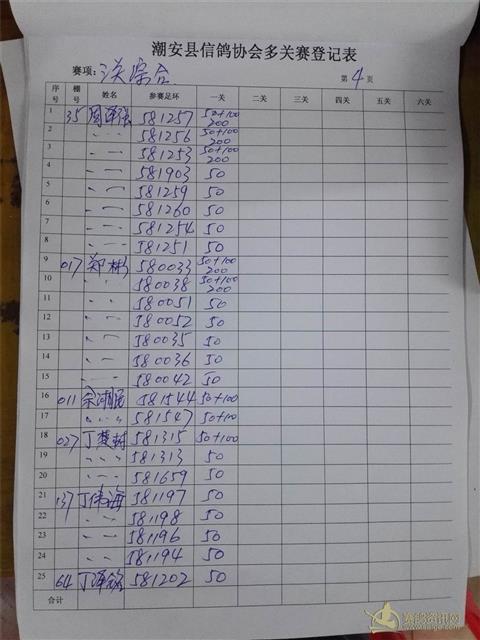 潮安县信鸽协会多关赛登记表
赛项: 三关综合 第 4 页
序号 棚号 姓名 参赛足环 一关 二关 三关 四关 五关 六关
1 35 周泽强 581257 50+100 200
2 〃 581256 50+100 200
3 〃 581253 50+100 200
4 〃 581903 50
5 〃 581259 50
6 〃 581260 50
7 〃 581254 50
8 〃 581251 50
9 017 郑彬 580033 50+100 200
10 〃 580038 50+100 200
11 〃 580051 50
12 〃 580052 50
13 〃 580035 50
14 〃 580036 50
15 〃 580042 50
16 011 581544 50+100
17 〃 581547 50+100
18 027 丁楚 581315 50+100
19 〃 581313 50
20 〃 581659 50
21 137 丁伟海 581197 50
22 〃 581198 50
23 〃 581196 50
24 〃 581194 50
25 64 丁泽 581202 50
合计
赛鸽资讯网